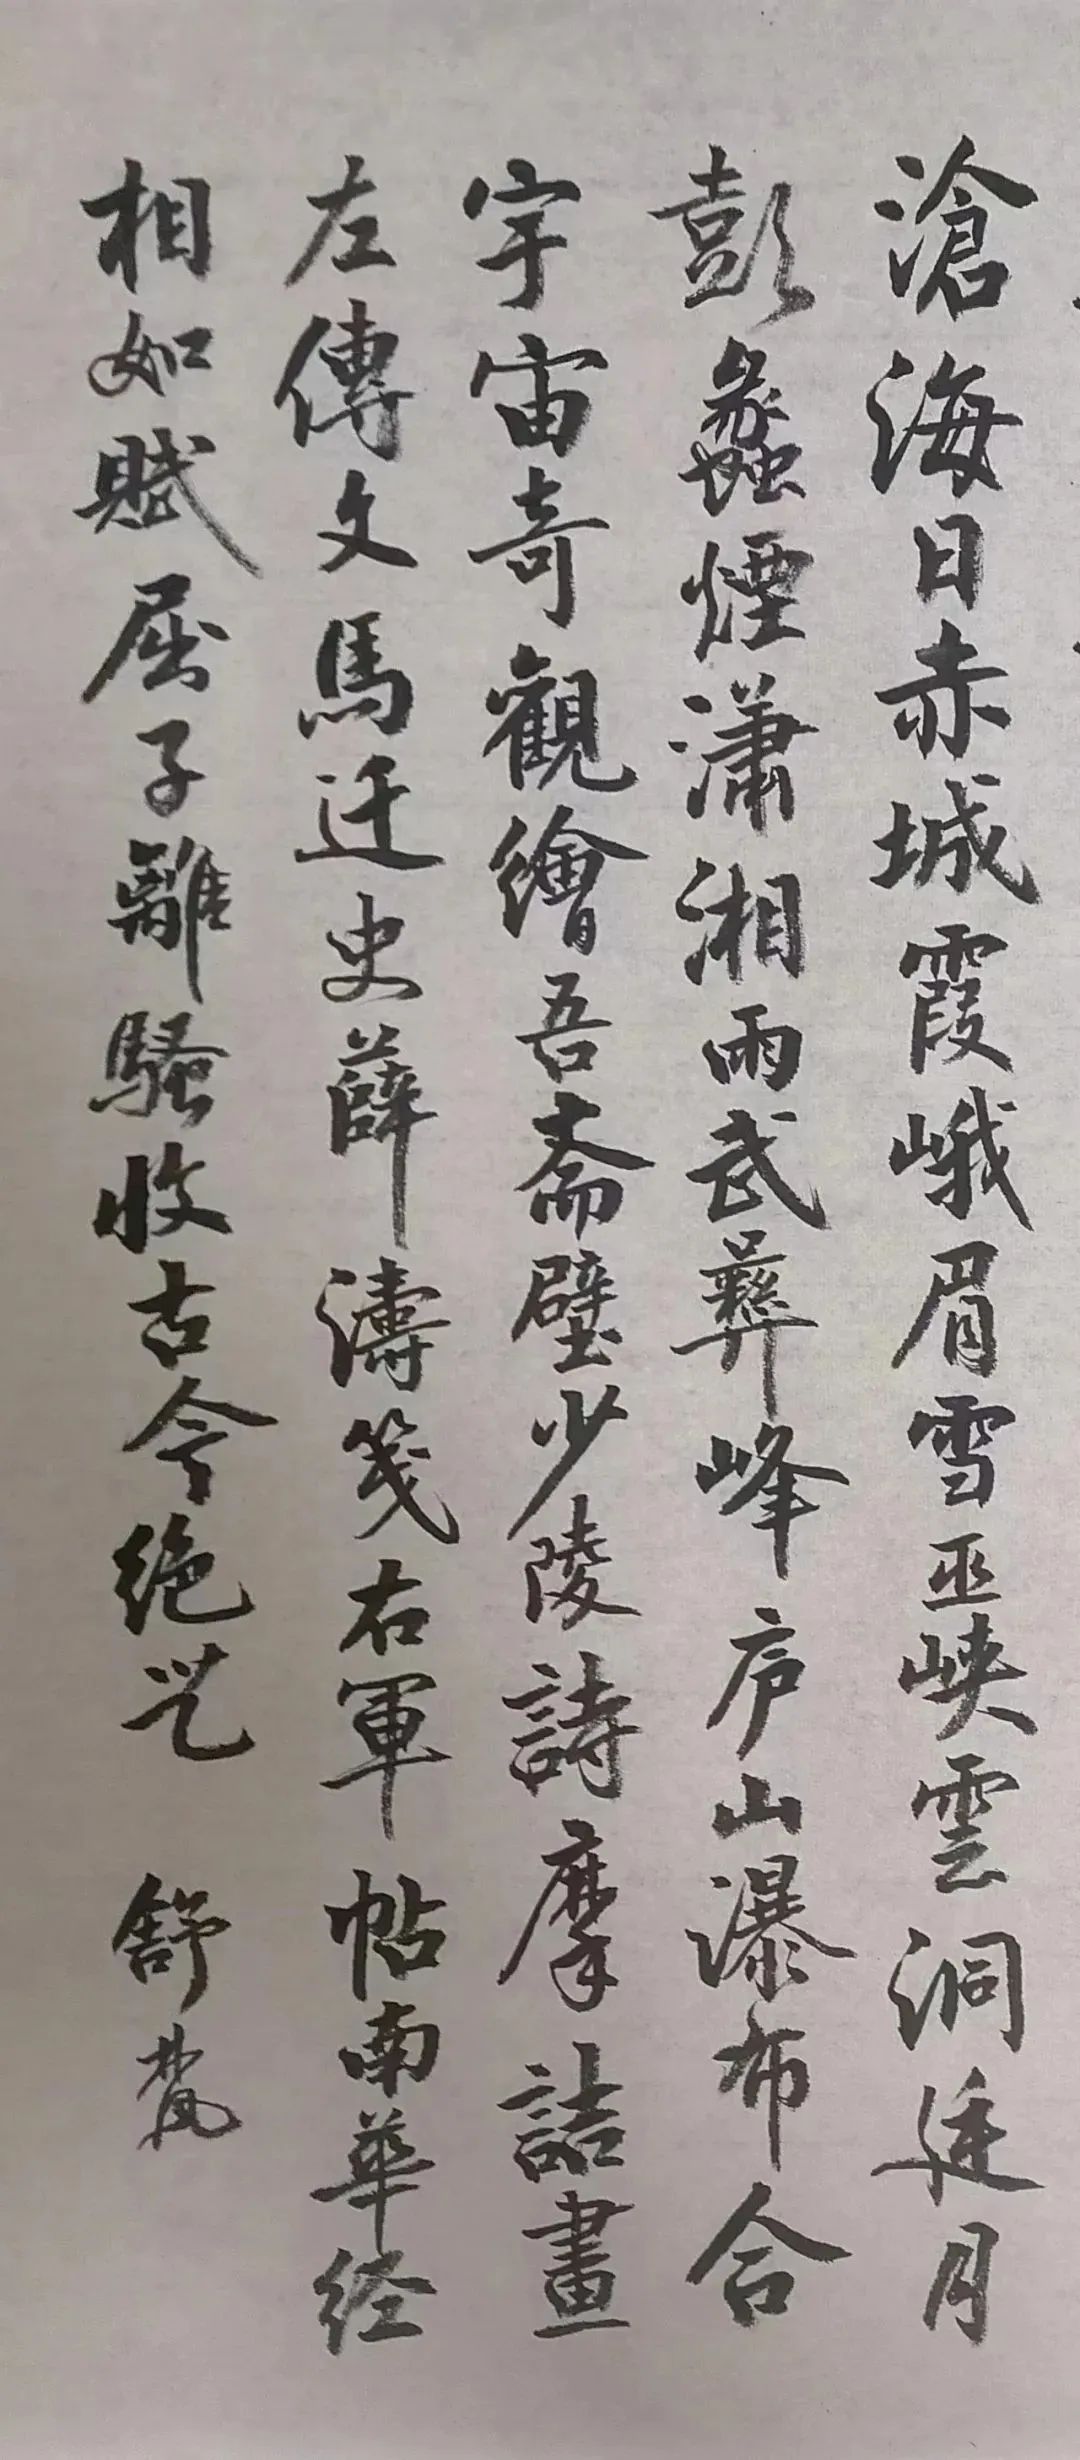 滄海日赤城霞峨眉雪巫峽雲洞廷月
彭蠡煙瀟湘雨武彝峰庐山瀑布合
宇宙奇觀繪吾齋壁少陵詩摩詰畫
左傳文馬迁史薛濤笺右軍帖南華经
相如賦屈子離騷收古今绝艺
舒